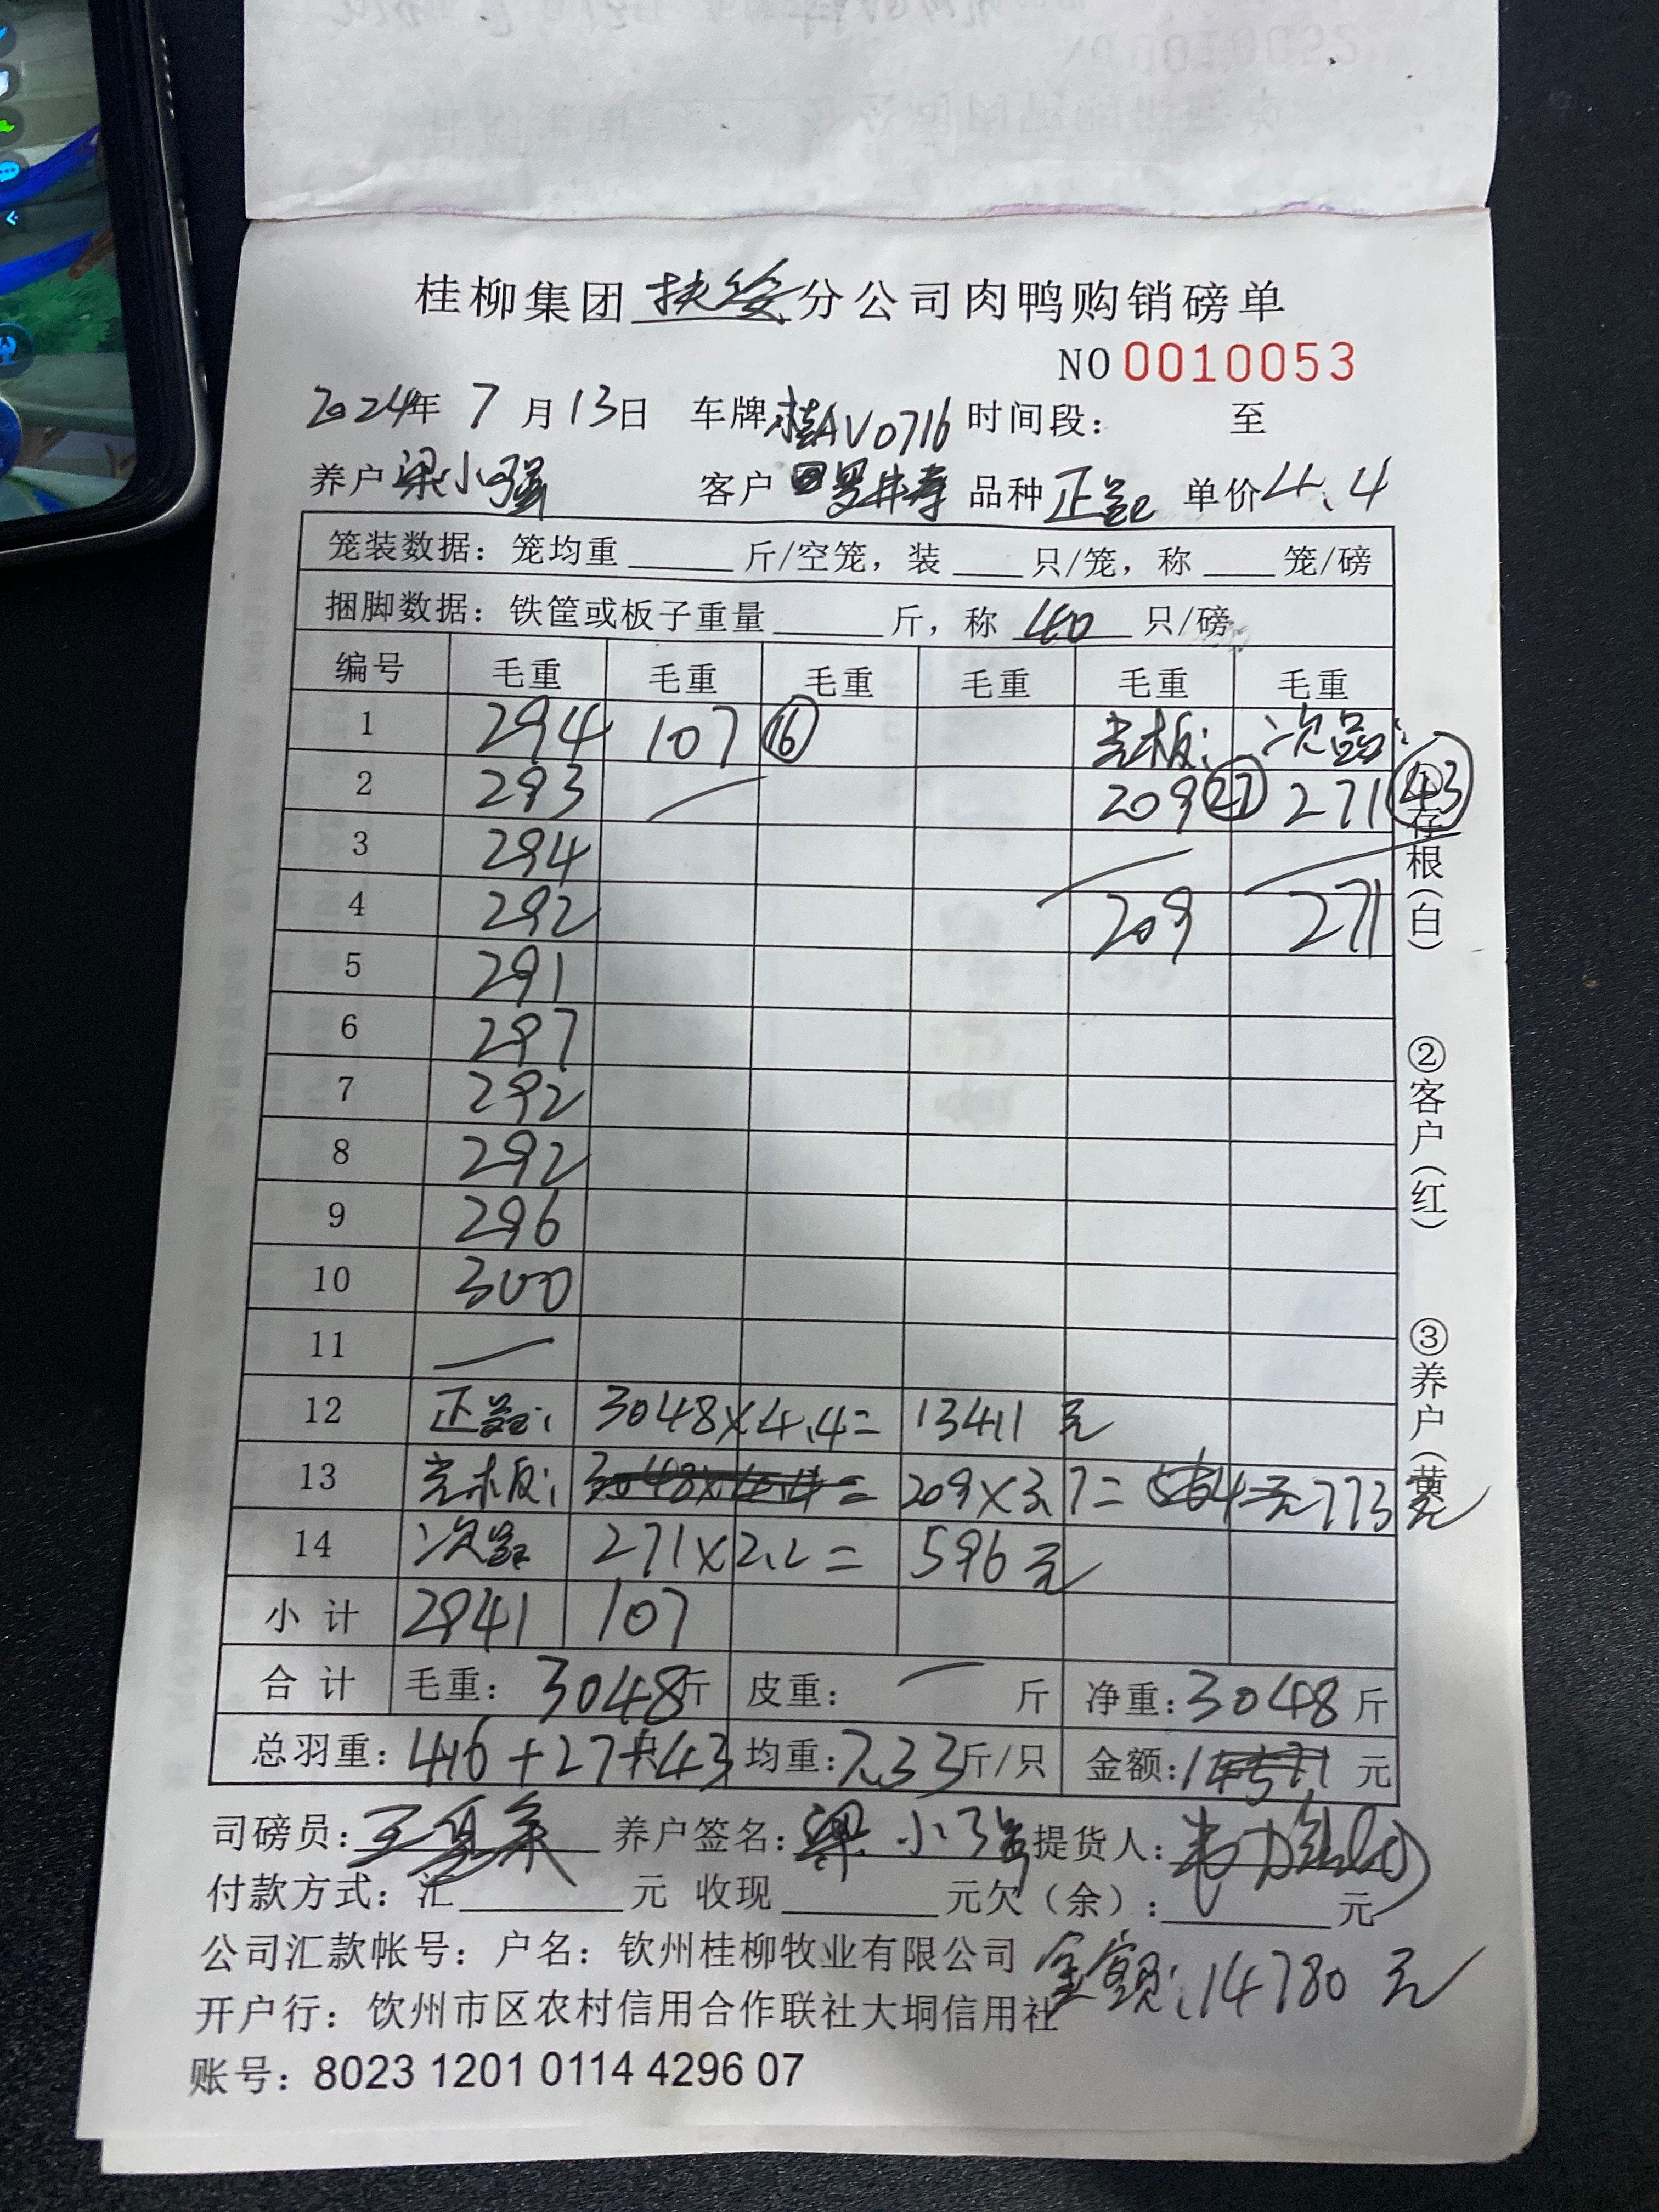 桂柳集团 扶绥 分公司肉鸭购销磅单
NO 0010053
2024年 7 月 13日 车牌 桂AV0716 时间段: 至
养户 梁小强 客户 品种 正品 单价 4.4
笼装数据: 笼均重 斤/空笼, 装 只/笼, 称 笼/磅
捆脚数据: 铁筐或板子重量 斤, 称 40 只/磅
编号 毛重 毛重 毛重 毛重 毛重 毛重
1 294 107 16 光板: 次品:
2 293 209 27 271 43
3 294
4 292 209 271
5 291
6 297
7 292
8 292
9 296
10 300
11
12 正品: 3048×4.4= 13411 元
13 光板: 3048×4.4= 209×3.7= 564元 773元
14 次品 271×2.2= 596元
小计 2941 107
合计 毛重: 3048斤 皮重: 斤 净重: 3048斤
总羽重: 416+27+43 均重: 7.33斤/只 金额: 元
司磅员: 养户签名: 梁小强 提货人:
付款方式: 汇 元 收现 元欠(余): 元
公司汇款帐号: 户名: 钦州桂柳牧业有限公司 金额: 14780 元
开户行: 钦州市区农村信用合作联社大垌信用社
账号: 8023 1201 0114 4296 07
存根(白)
②客户(红)
③养户(黄)